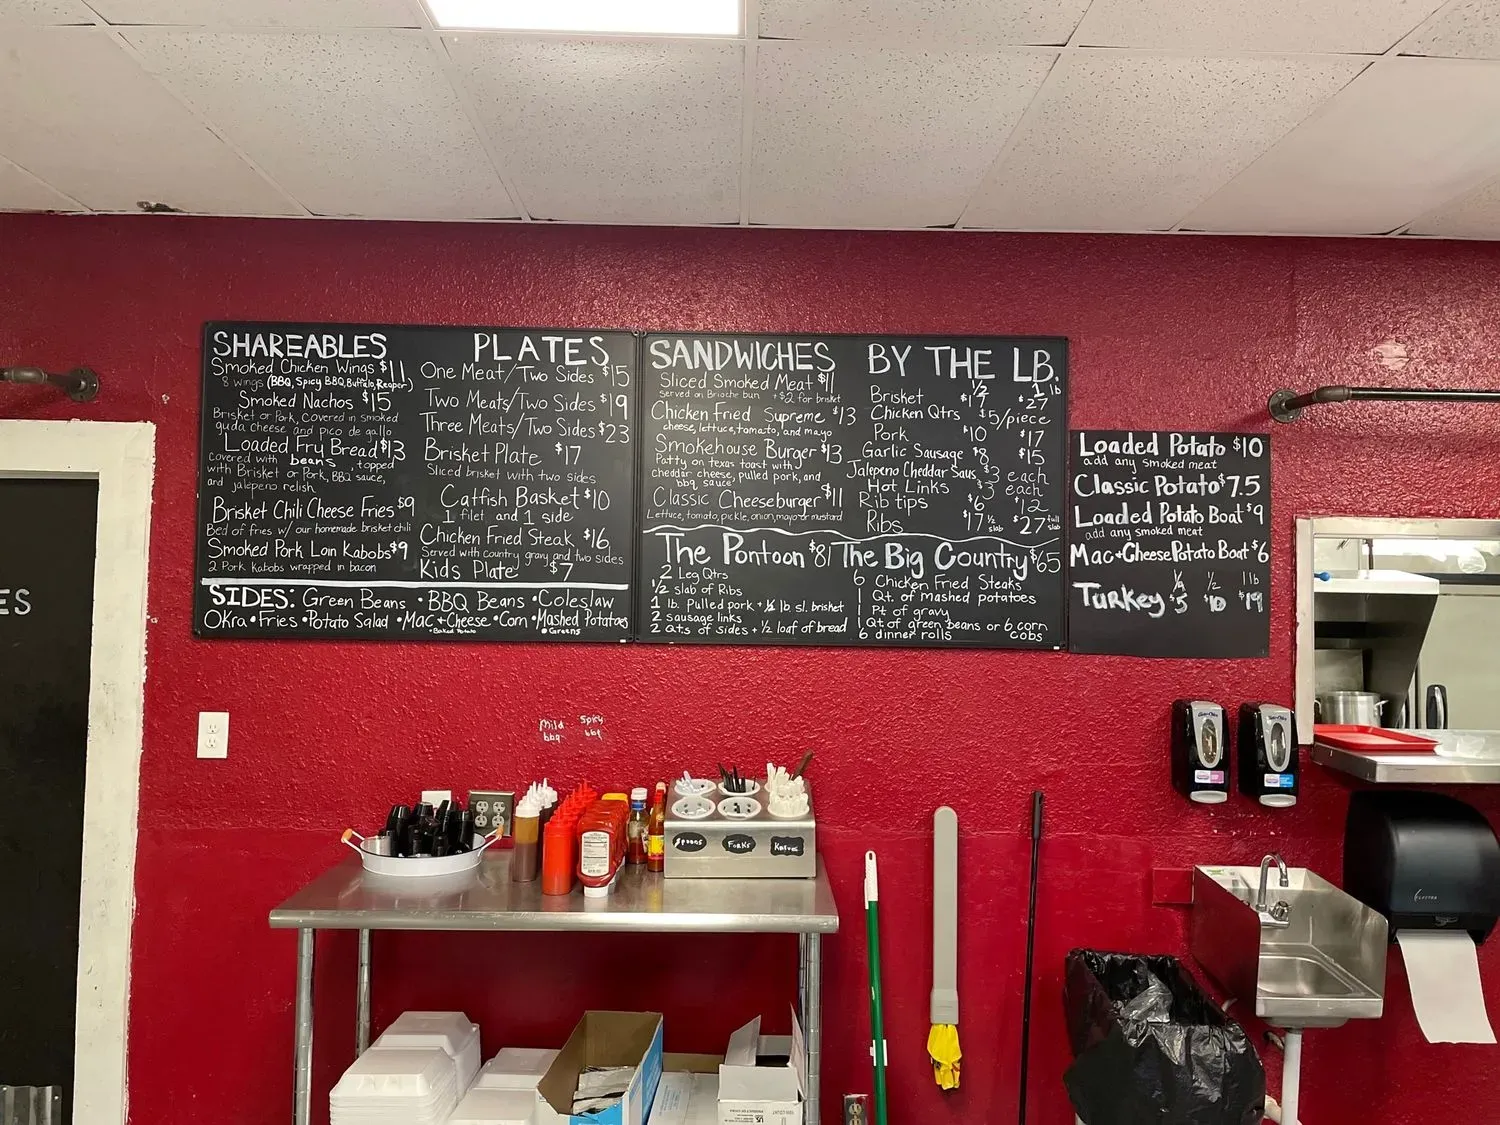 SHAREABLES
Smoked Chicken Wings $11
8 wings (BBQ, Spicy BBQ, Buffalo, Reaper)
Smoked Nachos $15
Brisket or Pork, Covered in smoked
guda cheese and pico de gallo
Loaded Fry Bread $13
covered with beans, topped
with Brisket or Pork, BBQ sauce,
and jalapeno relish.
Brisket Chili Cheese Fries $9
Bed of fries w/ our homemade brisket chili
Smoked Pork Loin Kabobs $9
2 Pork kabobs wrapped in bacon
PLATES
One Meat/Two Sides $15
Two Meats/Two Sides $19
Three Meats/Two Sides $23
Brisket Plate $17
Sliced brisket with two sides
Catfish Basket $10
1 filet and 1 side
Chicken Fried Steak $16
Served with country gravy and two sides
Kids Plate $7
SIDES: Green Beans • BBQ Beans • Coleslaw
Okra • Fries • Potato Salad • Mac + Cheese • Corn • Mashed Potatoes
• Baked Potato • Greens
SANDWICHES
Sliced Smoked Meat $11
served on Brioche bun +$2 for brisket
Chicken Fried Supreme $13
cheese, lettuce, tomato, and mayo
Smokehouse Burger $13
Patty on texas toast with
cheddar cheese, pulled pork, and
bbq sauce
Classic Cheeseburger $11
Lettuce, tomato, pickle, onion, mayo or mustard
BY THE LB.
1/2 1 lb
Brisket $17 $27
Chicken Qtrs $5/piece
Pork $10 $17
Garlic Sausage $8 $15
Jalepeno Cheddar Saus $3 each
Hot Links $3 each
Rib tips $6 $12
Ribs $17 1/2 slab $27 full slab
The Pontoon $81
2 Leg Qtrs
1/2 slab of Ribs
1 lb. Pulled pork + 1/2 lb sl. brisket
2 sausage links
2 Qts of sides + 1/2 loaf of bread
The Big Country $65
6 Chicken Fried Steaks
1 Qt. of mashed potatoes
1 Pt of gravy
1 Qt of green beans or 6 corn cobs
6 dinner rolls
Loaded Potato $10
add any smoked meat
Classic Potato $7.5
Loaded Potato Boat $9
add any smoked meat
Mac+Cheese Potato Boat $6
1/2 1 lb
Turkey $5 $10 $19
ES
Mild bbq
Spicy bbq
Spoons
Forks
Knives